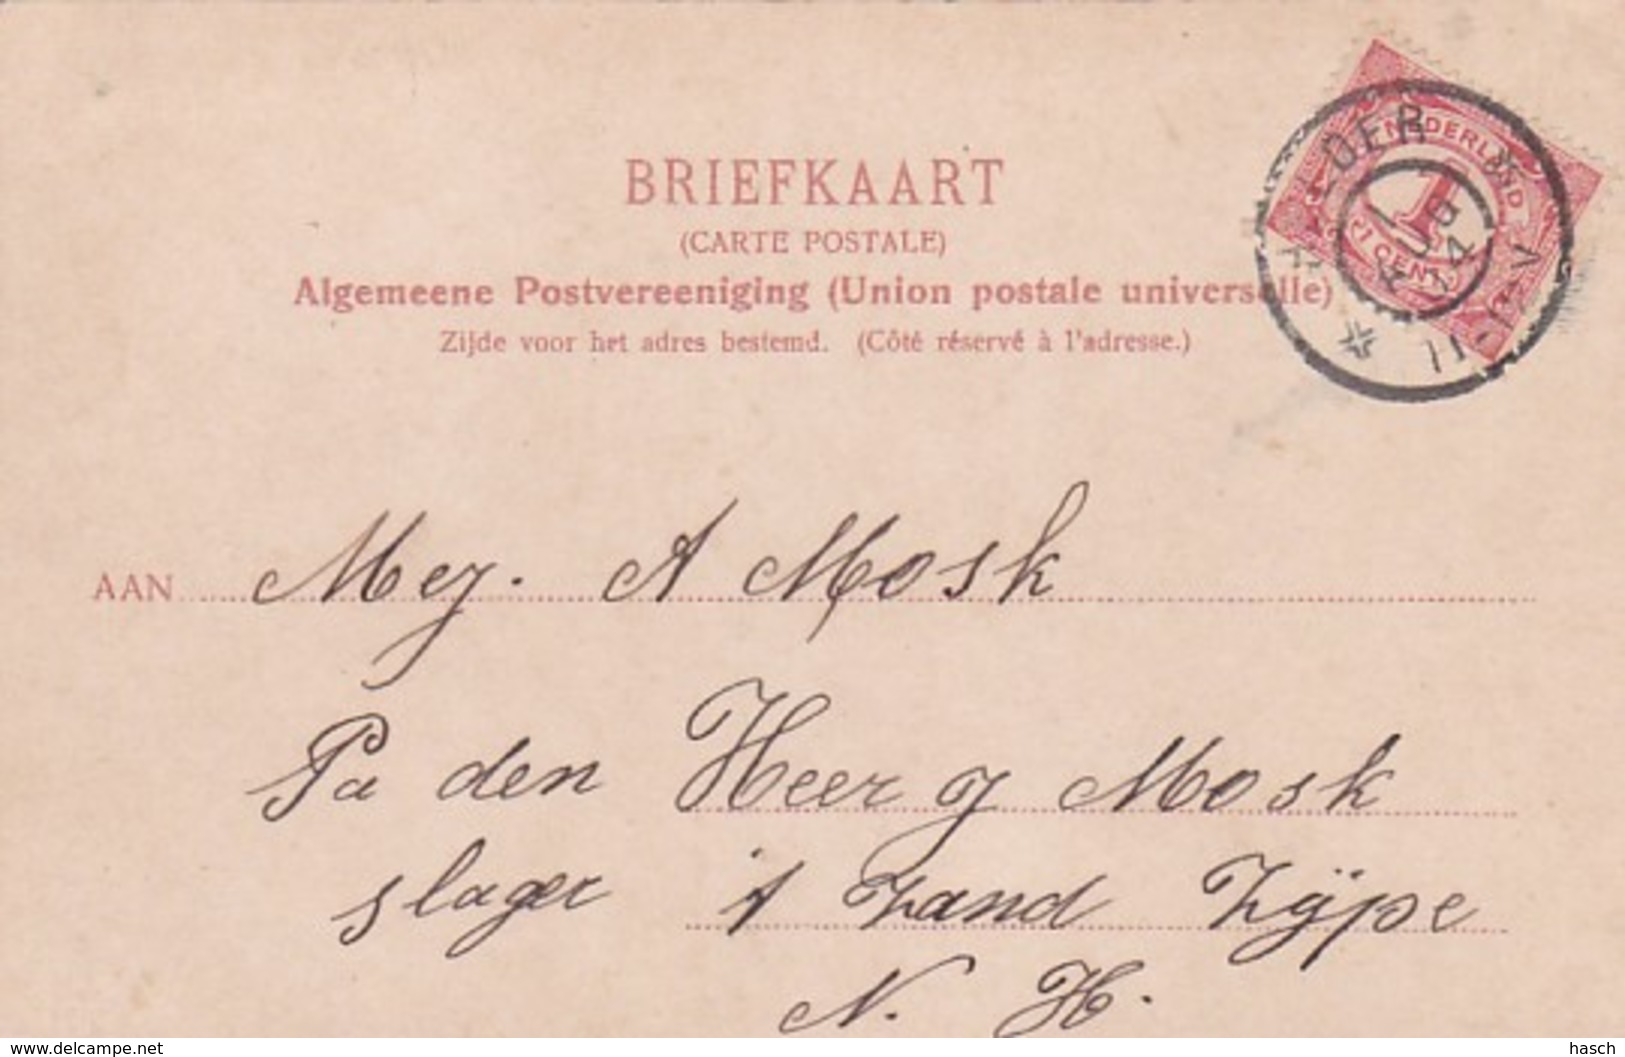 BRIEFKAART
(CARTE POSTALE)
Algemeene Postvereeniging (Union postale universelle)
Zijde voor het adres bestemd. (Côté réservé à l'adresse.)
NEDERLAND
1
1 CENT
11-12V
AUG
14
AAN Mej. A Mosk
Pa den Heer J Mosk
slager 't Zand Zijpe
N. H.
www.delcampe.net
hasch